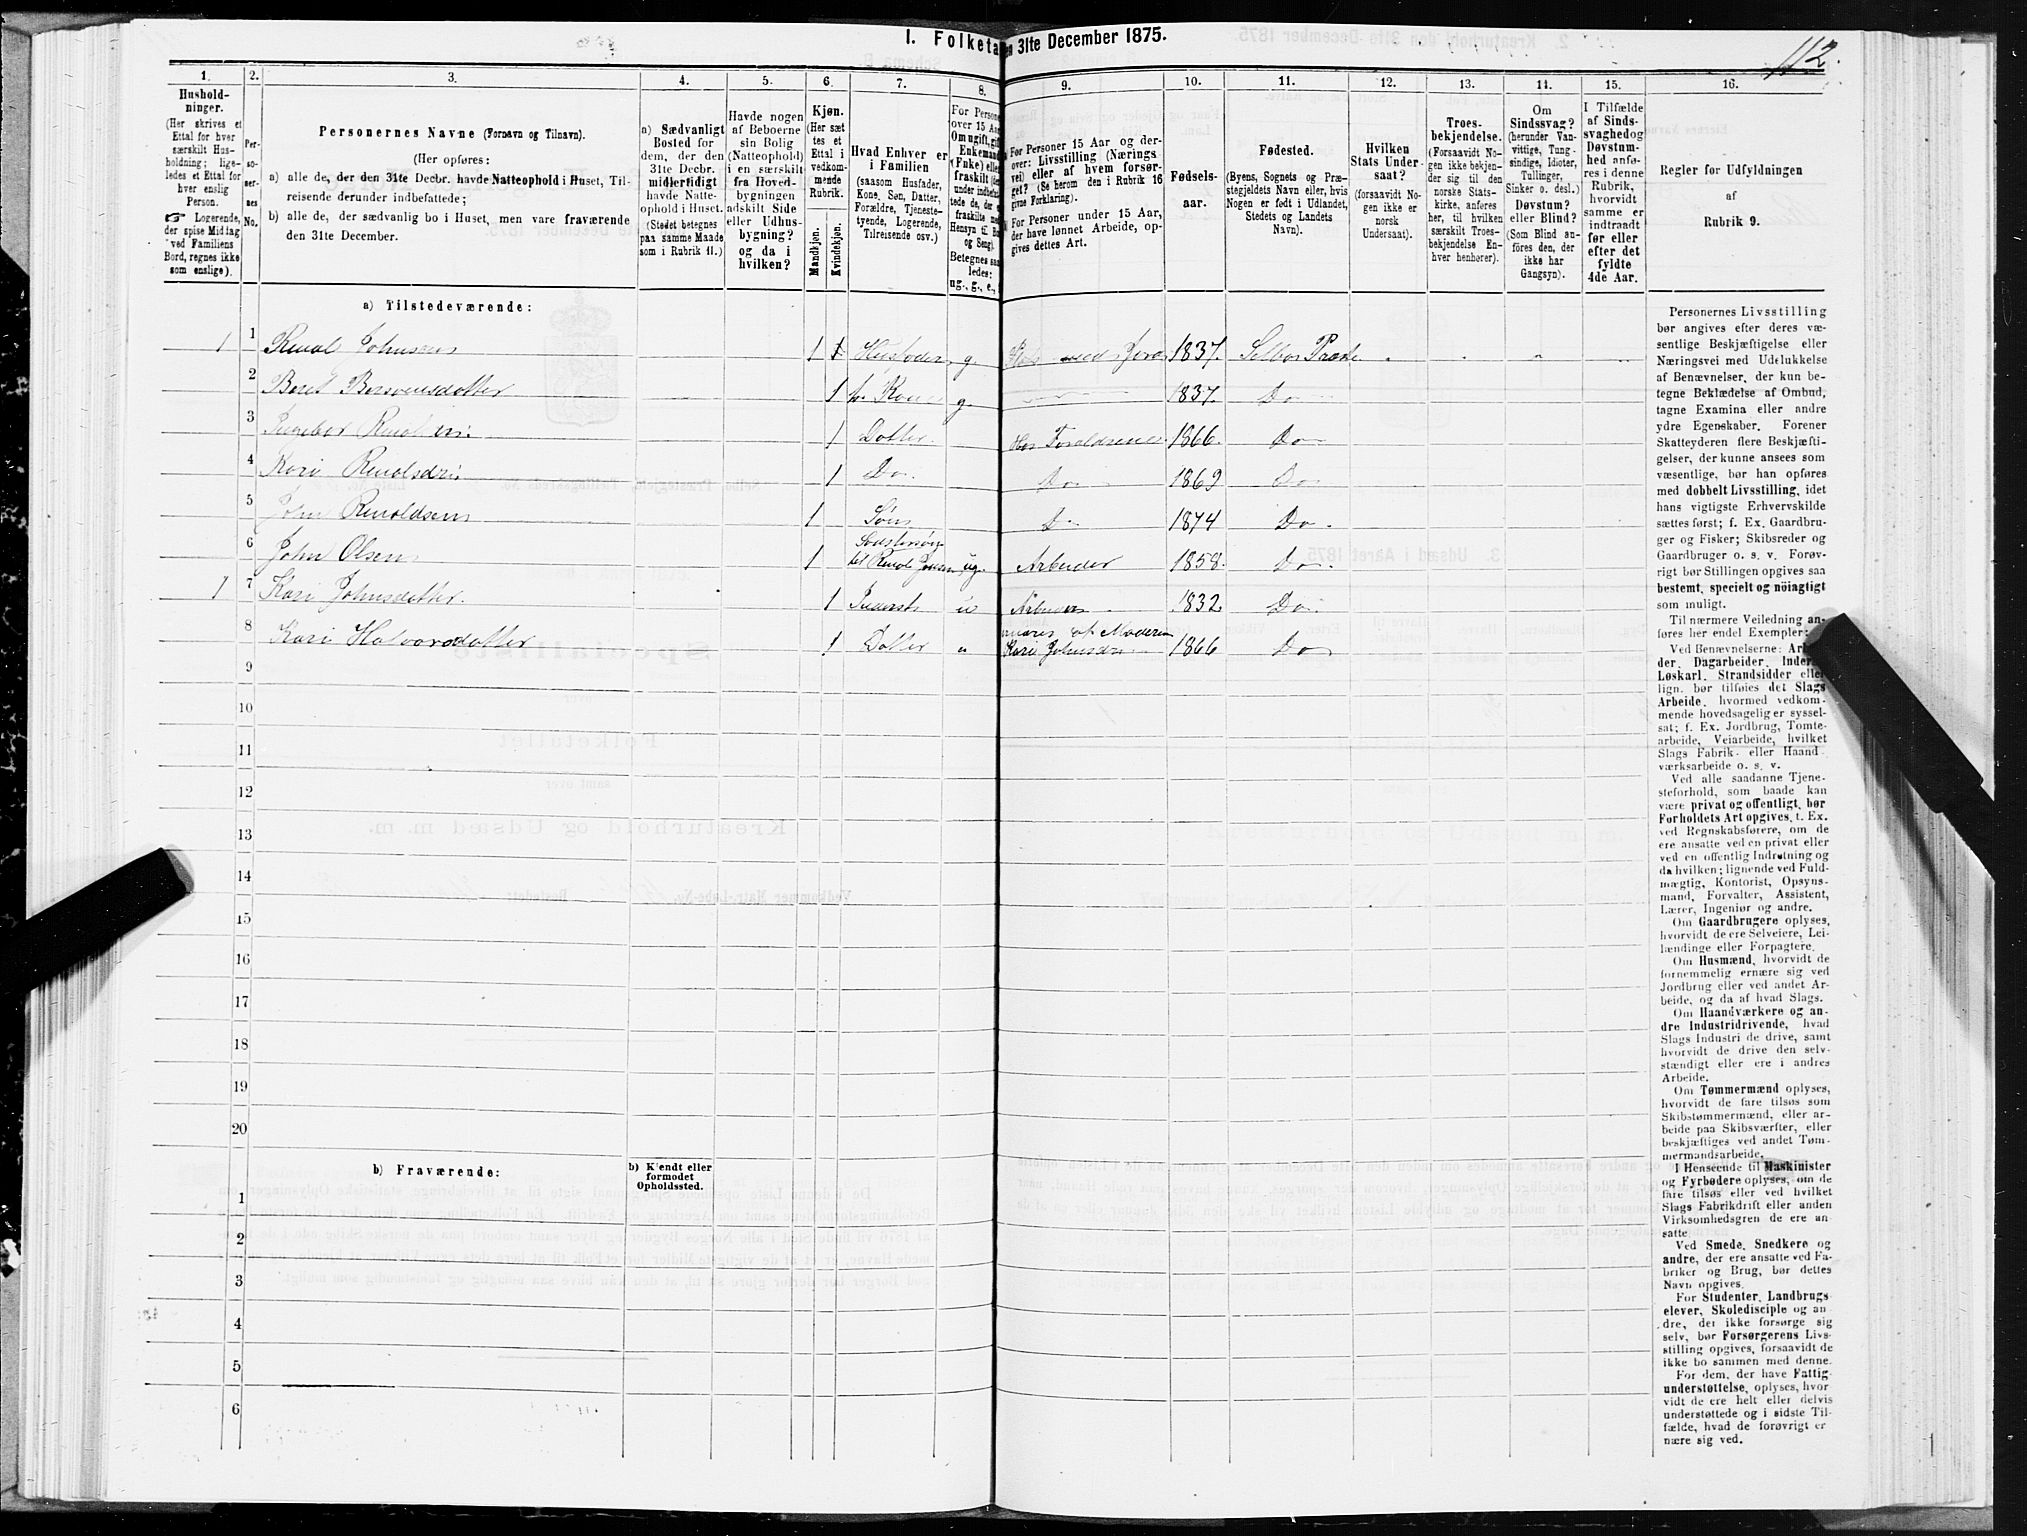 I. Folketa en 31te December 1875.
112.
1.
2.
3.
4.
5.
6.
7.
8.
9.
10.
11.
12.
13.
14.
15.
16.
Hushold-
ninger.
(Her skrives et
Ettal for hver
særskilt Hus-
holdning; lige-
ledes et Ettal for
hver enslig
Person.
☞ Logerende,
der spise Middag
ved Familiens
Bord, regnes ikke
som enslige).
Per-
so-
ner-
nes
No.
Personernes Navne (Fornavn og Tilnavn).
(Her opføres:
a) alle de, der den 31te Decbr. havde Natteophold i Huset, Til-
reisende derunder indbefattede;
b) alle de, der sædvanlig bo i Huset, men vare fraværende
den 31te December.
a) Sædvanligt
Bosted for
dem, der den
31te Decbr.
midlertidigt
havde Natte-
ophold i Huset.
(Stedet betegnes
paa samme Maade
som i Rubrik 11.)
Havde nogen
af Beboerne
sin Bolig
(Natteophold)
i en særskilt
fra Hoved-
bygningen
adskilt Side
eller Udhus-
bygning?
og da i
hvilken?
Kjøn.
(Her sæt
tes et
Ettal i
vedkom-
mende
Rubrik.
Mandkjøn.
Kvindekjøn.
Hvad Enhver er
i Familien
(saasom Husfader,
Kone, Søn, Datter,
Forældre, Tjeneste-
tyende, Logerende,
Tilreisende osv.)
For Persone
over 15 Aa
Om ugift, gif
Enkemand
(Enke) elle
fraskilt
Betegnes saa
ledes:
ug., g., e.,
For Personer 15 Aar og der-
over: Livsstilling (Nærings
vei) eller af hvem forsør-
get? (Se herom den i Rubrik 16
givne Forklaring).
For Personer under 15 Aar,
der have lønnet Arbeide, op-
gives dettes Art.
Fødsels-
aar.
Fødested.
(Byens, Sognets og Præ-
stegjeldets Navn eller, hvis
Nogen er født i Udlandet,
Stedets og Landets
Navn).
Hvilken
Stats Under-
saat?
(forsaavidt No-
gen ikke er
norsk
Undersaat).
Troes-
bekjendelse.
(Forsaavidt No-
gen ikke bekjen-
der sig til den
norske Stats-
kirke, anføres
her, til hvilken
særskilt Troes-
bekjendelse En-
hver henhører).
Om
Sindssvag?
(herunder Van-
vittige, Tung-
sindige, Idioter,
Tullinger,
Sinker o. desl.)
Døvstum?
eller Blind?
(Som Blind an-
føres den, der
ikke har
Gangsyn).
I Tilfælde
af Sinds-
svaghed og
Døvstum-
hed anfø-
res i denne
Rubrik,
hvorvidt
samme er
indtraadt
før eller
efter det
fyldte
4de Aar.
Regler for Udfyldningen
af
Rubrik 9.
a) Tilstedeværende:
1 1 Renal Johnsen 1 1 Husfader g. med Jord 1837. Selbo Præste
2 Beret Bersvensdotter 1 h. Kone g. 1837. Do
3 Ingebor 1 Dotter. Hos Foreldrene 1866. Do
4 Kari Renolsdri 1 Do. Do 1869 Do
5 John Renoldsen 1 Søn D 1874 Do.
6 John Olsen 1 Sødstersøn
til Renol Jonsen ug. Arbeider 1858. Do.
1 7 Kari Johnsdotter. 1 Inderst u Arbeider 1832. Do
8 Kari Halvorsdotter 1 Dotter " næres af Moderen
Kari Johnsdri 1866 Do
9
10
11
12
13
14
15
16
17
18
19
20
b) Fraværende:
b) Kjendt eller
formodet
Opholdssted.
1
2
3
4
5
6
Personernes Livsstilling
bør angives efter deres væ-
sentlige Beskjæftigelse eller
Næringsvei med Udelukkelse
af Benævnelser, der kun be-
tegne Beklædelse af Ombud,
tagne Examina eller andre
ydre Egenskaber. Forener
Skatteyderen flere Beskjæfti-
gelser, der kunne ansees som
væsentlige, bør han opføres
med dobbelt Livsstilling, idet
hans vigtigste Erhvervskilde
sættes først; f. Ex. Gaardbru-
ger og Fisker; Skibsreder og
Gaardbruger o. s. v. Forøv-
rigt bør Stillingen opgives saa
bestemt, specielt og nöiagtigt
som muligt.
Til nærmere Veiledning an-
føres her endel Exempler:
Ved Benævnelserne: Arbei-
der, Dagarbeider, Inder
Løskarl, Strandsidder eller
lign. bør tilføies det Slags
Arbeide, hvormed vedkom-
mende hovedsagelig er syssel-
sat; f. Ex. Jordbrug, Tomte-
arbeide, Veiarbeide, hvilket
Slags Fabrik- eller Haand
værksarbeide o. s. v.
Ved alle saadanne Tjene-
steforhold, som baade kan
være privat og offentligt, bør
Forholdets Art opgives, t. Ex.
ved Regnskabsførere, om de
ere ansatte ved en privat eller
ved en offentlig Indretning og
da hvilken; lignende ved Fuld-
mægtig, Kontorist, Opsyns-
mand, Forvalter, Assistent,
Lærer, Ingeniør og andre.
Om Gaardbrugere oplyses,
hvorvidt de ere Selveiere, Lei-
lændinge eller Forpagtere.
Om Husmænd, hvorvidt de
fornemmelig ernære sig ved
Jordbrug eller ved andet Ar-
beide, og da af hvad Slags.
Om Haandværkere og an-
dre Industridrivende, hvad
Slags Industri de drive, samt
hvorvidt de drive den selv-
stændigt eller ere i andres
Arbeide.
Om Tømmermænd oplyses,
hvorvidt de fare tilsøs som
Skibstømmermænd, eller ar-
beide paa Skibsværfter, eller
beskjæftiges ved andet Tøm-
mermandsarbeide.
I Henseende til Maskinister
og Fyrbødere oplyses, om de
fare tilsøs eller ved hvilket
Slags Fabrikdrift eller anden
Virksomhedsgren de ere an-
satte
Ved Smede, Snedkere og
andre, der ere ansatte ved Fa-
briker og Brug, bør dettes
Navn opgives.
For Studenter, Landbrugs
elever, Skoledisciple og an-
dre, der ikke forsørge sig
selv, bør Forsørgerens Livs-
stilling opgives, forsaavidt de
ikke bo sammen med denne.
For dem, der have Fattig
understøttelse, oplyses, hvor
vidt de ere helt eller delvis
understøttede og i sidste Til-
fælde, hvad de forøvrigt er
nære sig ved.